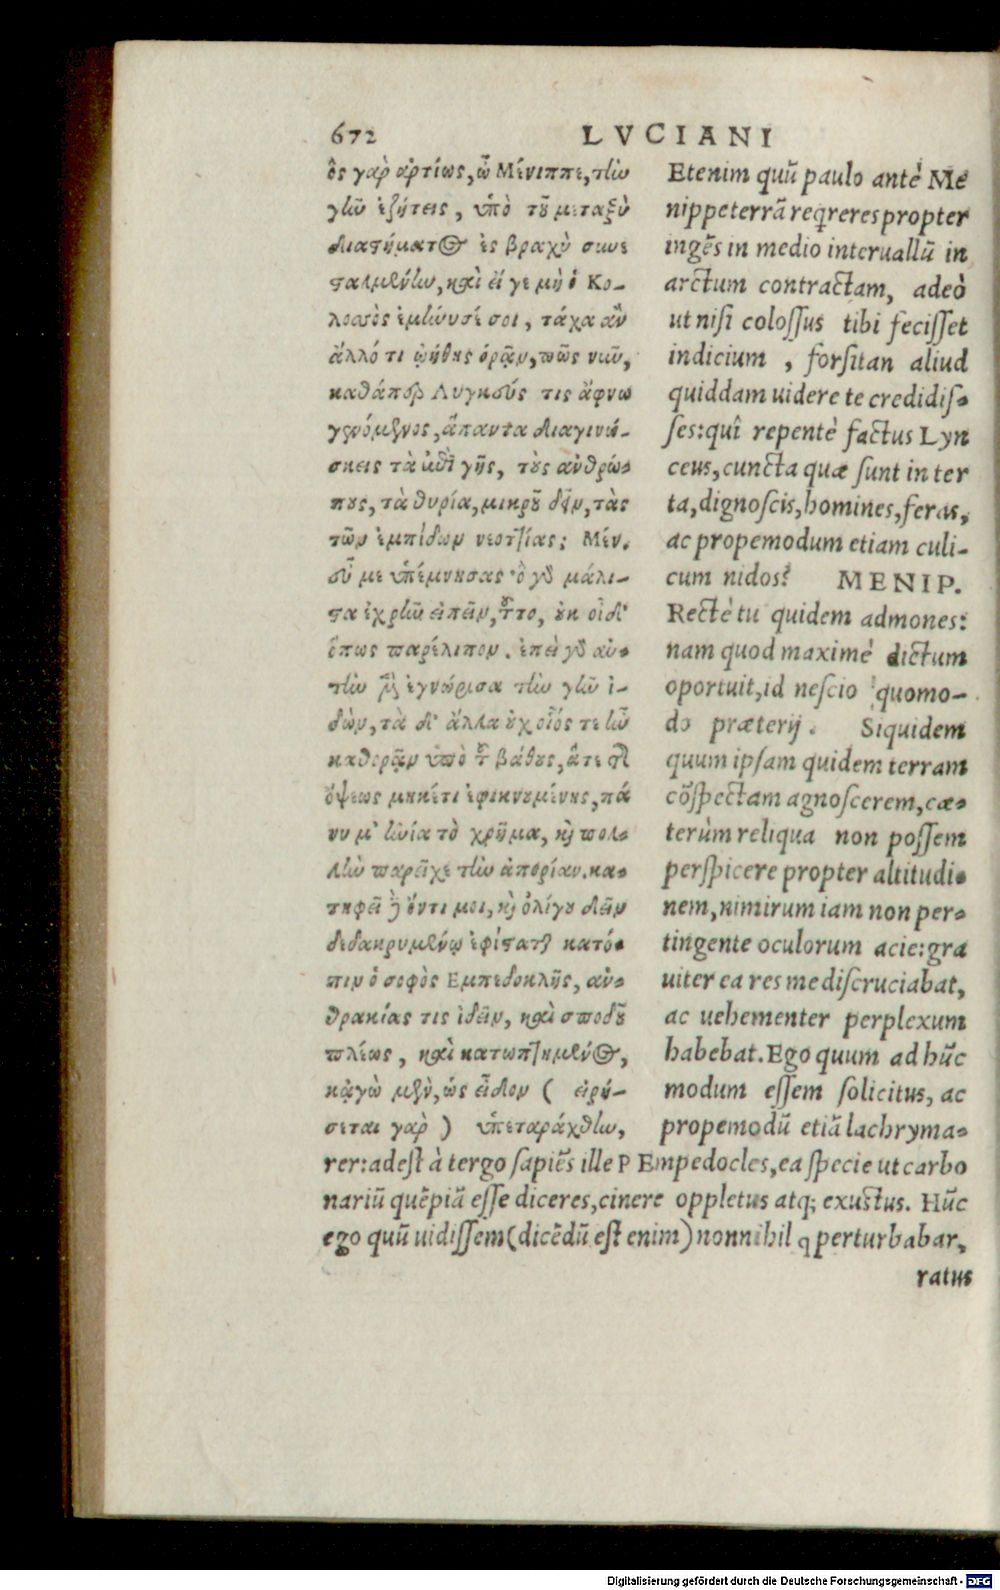 672 LVCIANI
ὃς γὰρ ἀρτίως, ὦ Μένιππε, τὴν
γῆν ἐζήτεις, ὑπὸ τοῦ μεταξὺ
διαστήματος ἐς βραχὺ συνε
σταλμένην, καὶ εἴ γε μὴ ὁ Κο-
λοσσὸς ἐμήνυσέ σοι, τάχα ἂν
ἄλλό τι ᾠήθης ὁρᾷν, πῶς νῦν,
καθάπερ Λυγκεύς τις ἄφνω
γενόμενος, ἅπαντα διαγινώ-
σκεις τὰ ἐπὶ γῆς, τοὺς ἀνθρώ-
πους, τὰ θηρία, μικροῦ δεῖν, τὰς
τῶν ἐμπίδων νεοττίας; Μέν.
εὖ με ὑπέμνησας· ὃ γὰρ μάλι-
στα ἐχρῆν εἰπεῖν, τοῦτο, οὐκ οἶδ'
ὅπως παρέλιπον. ἐπεὶ γὰρ αὐ-
τὴν μὲν ἐγνώρισα τὴν γῆν ἰ-
δὼν, τὰ δ' ἄλλα οὐχ οἷός τε ἦν
καθορᾷν ὑπὸ τοῦ βάθους, ἅτε τῆς
ὄψεως μηκέτι ἐφικνουμένης, πά
νυ μ' ἠνία τὸ χρῆμα, καὶ πολ-
λὴν παρεῖχε τὴν ἀπορίαν. κα-
τηφεῖ δὲ ὄντι μοι, καὶ ὀλίγου δεῖν
δεδακρυμένῳ ἐφίσταται κατό-
πιν ὁ σοφὸς Εμπεδοκλῆς, ἀν-
θρακίας τις ἰδεῖν, καὶ σποδοῦ
πλέως, καὶ κατωπτημένος,
κᾀγὼ μὲν, ὡς εἶδον ( εἰρή-
σεται γὰρ ) ὑπεταράχθην,
Etenim quũ paulo antè Me
nippe terrã reqreres propter
ingẽs in medio interuallũ in
arctum contractam, adeò
ut nisi colossus tibi fecisset
indicium , forsitan aliud
quiddam uidere te credidis-
ses: quî repentè factus Lyn
ceus, cuncta quæ sunt in ter
ra, dignoscis, homines, feras,
ac propemodum etiam culi-
cum nidos? MENIP.
Rectè tu quidem admones:
nam quod maximè dictum
oportuit, id nescio quomo-
do præterij. Siquidem
quum ipsam quidem terram
cõspectam agnoscerem, cæ-
terùm reliqua non possem
perspicere propter altitudi-
nem, nimirum iam non per-
tingente oculorum acie: gra
uiter ea res me discruciabat,
ac uehementer perplexum
habebat. Ego quum ad hũc
modum essem solicitus, ac
propemodũ etiã lachryma-
rer: adest à tergo sapiẽs ille P Empedocles, ea specie ut carbo
nariũ quẽpiã esse diceres, cinere oppletus atq; exustus. Hũc
ego quũ uidissem (dicẽdũ est enim) nonnihil q perturbabar,
ratus
Digitalisierung gefördert durch die Deutsche Forschungsgemeinschaft - DFG